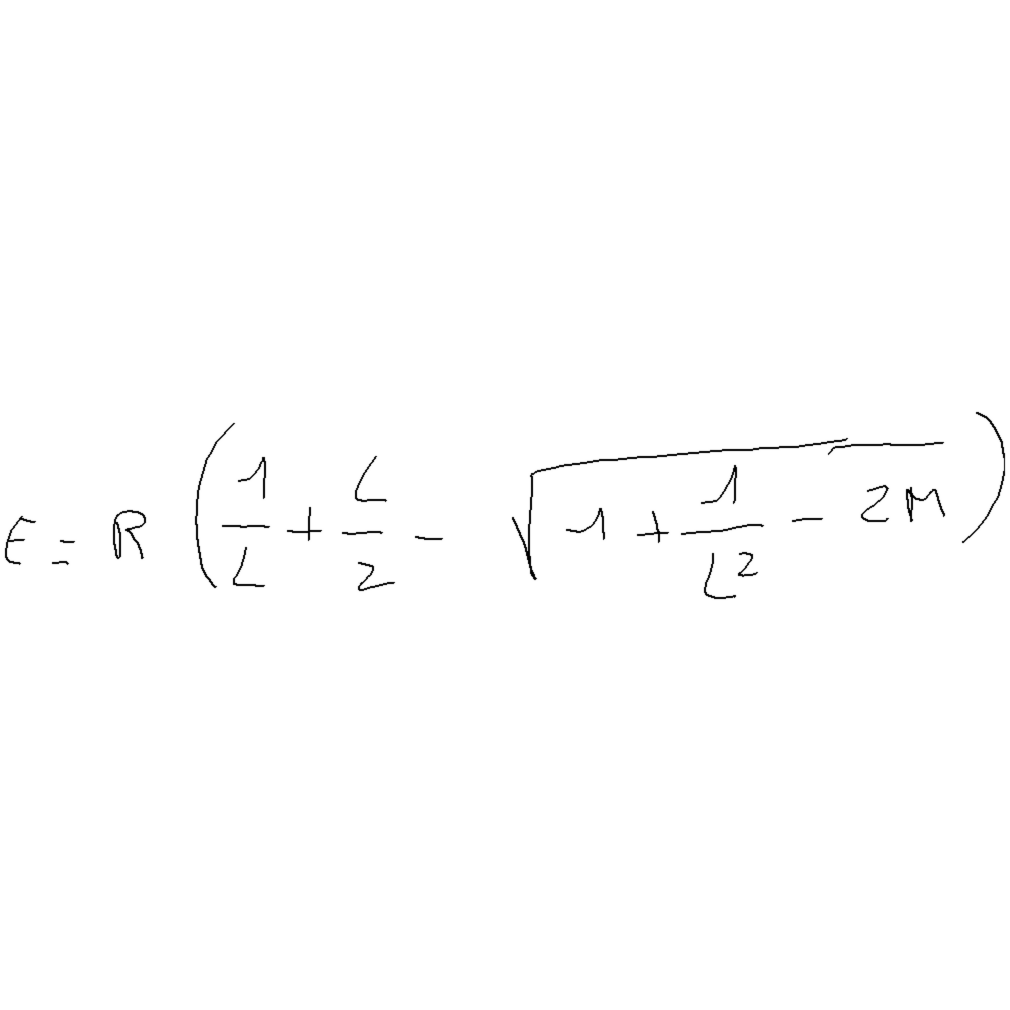 E = R ( 1/L + L/2 - √(1 + 1/L² - 2M) )